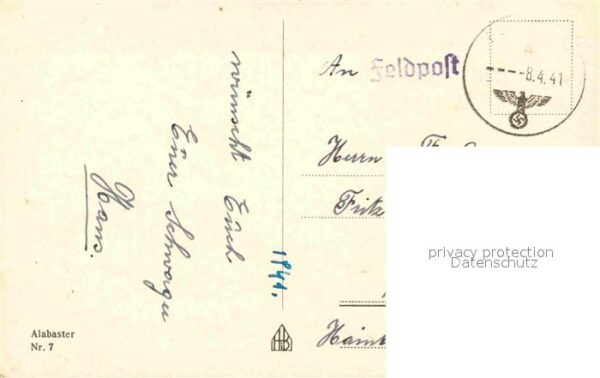 wünscht Euch
Euer Schwager
Hans.
1941.
Alabaster
Nr. 7
An Feldpost
-8.4.41
Herrn
Fritz
privacy protection
Datenschutz